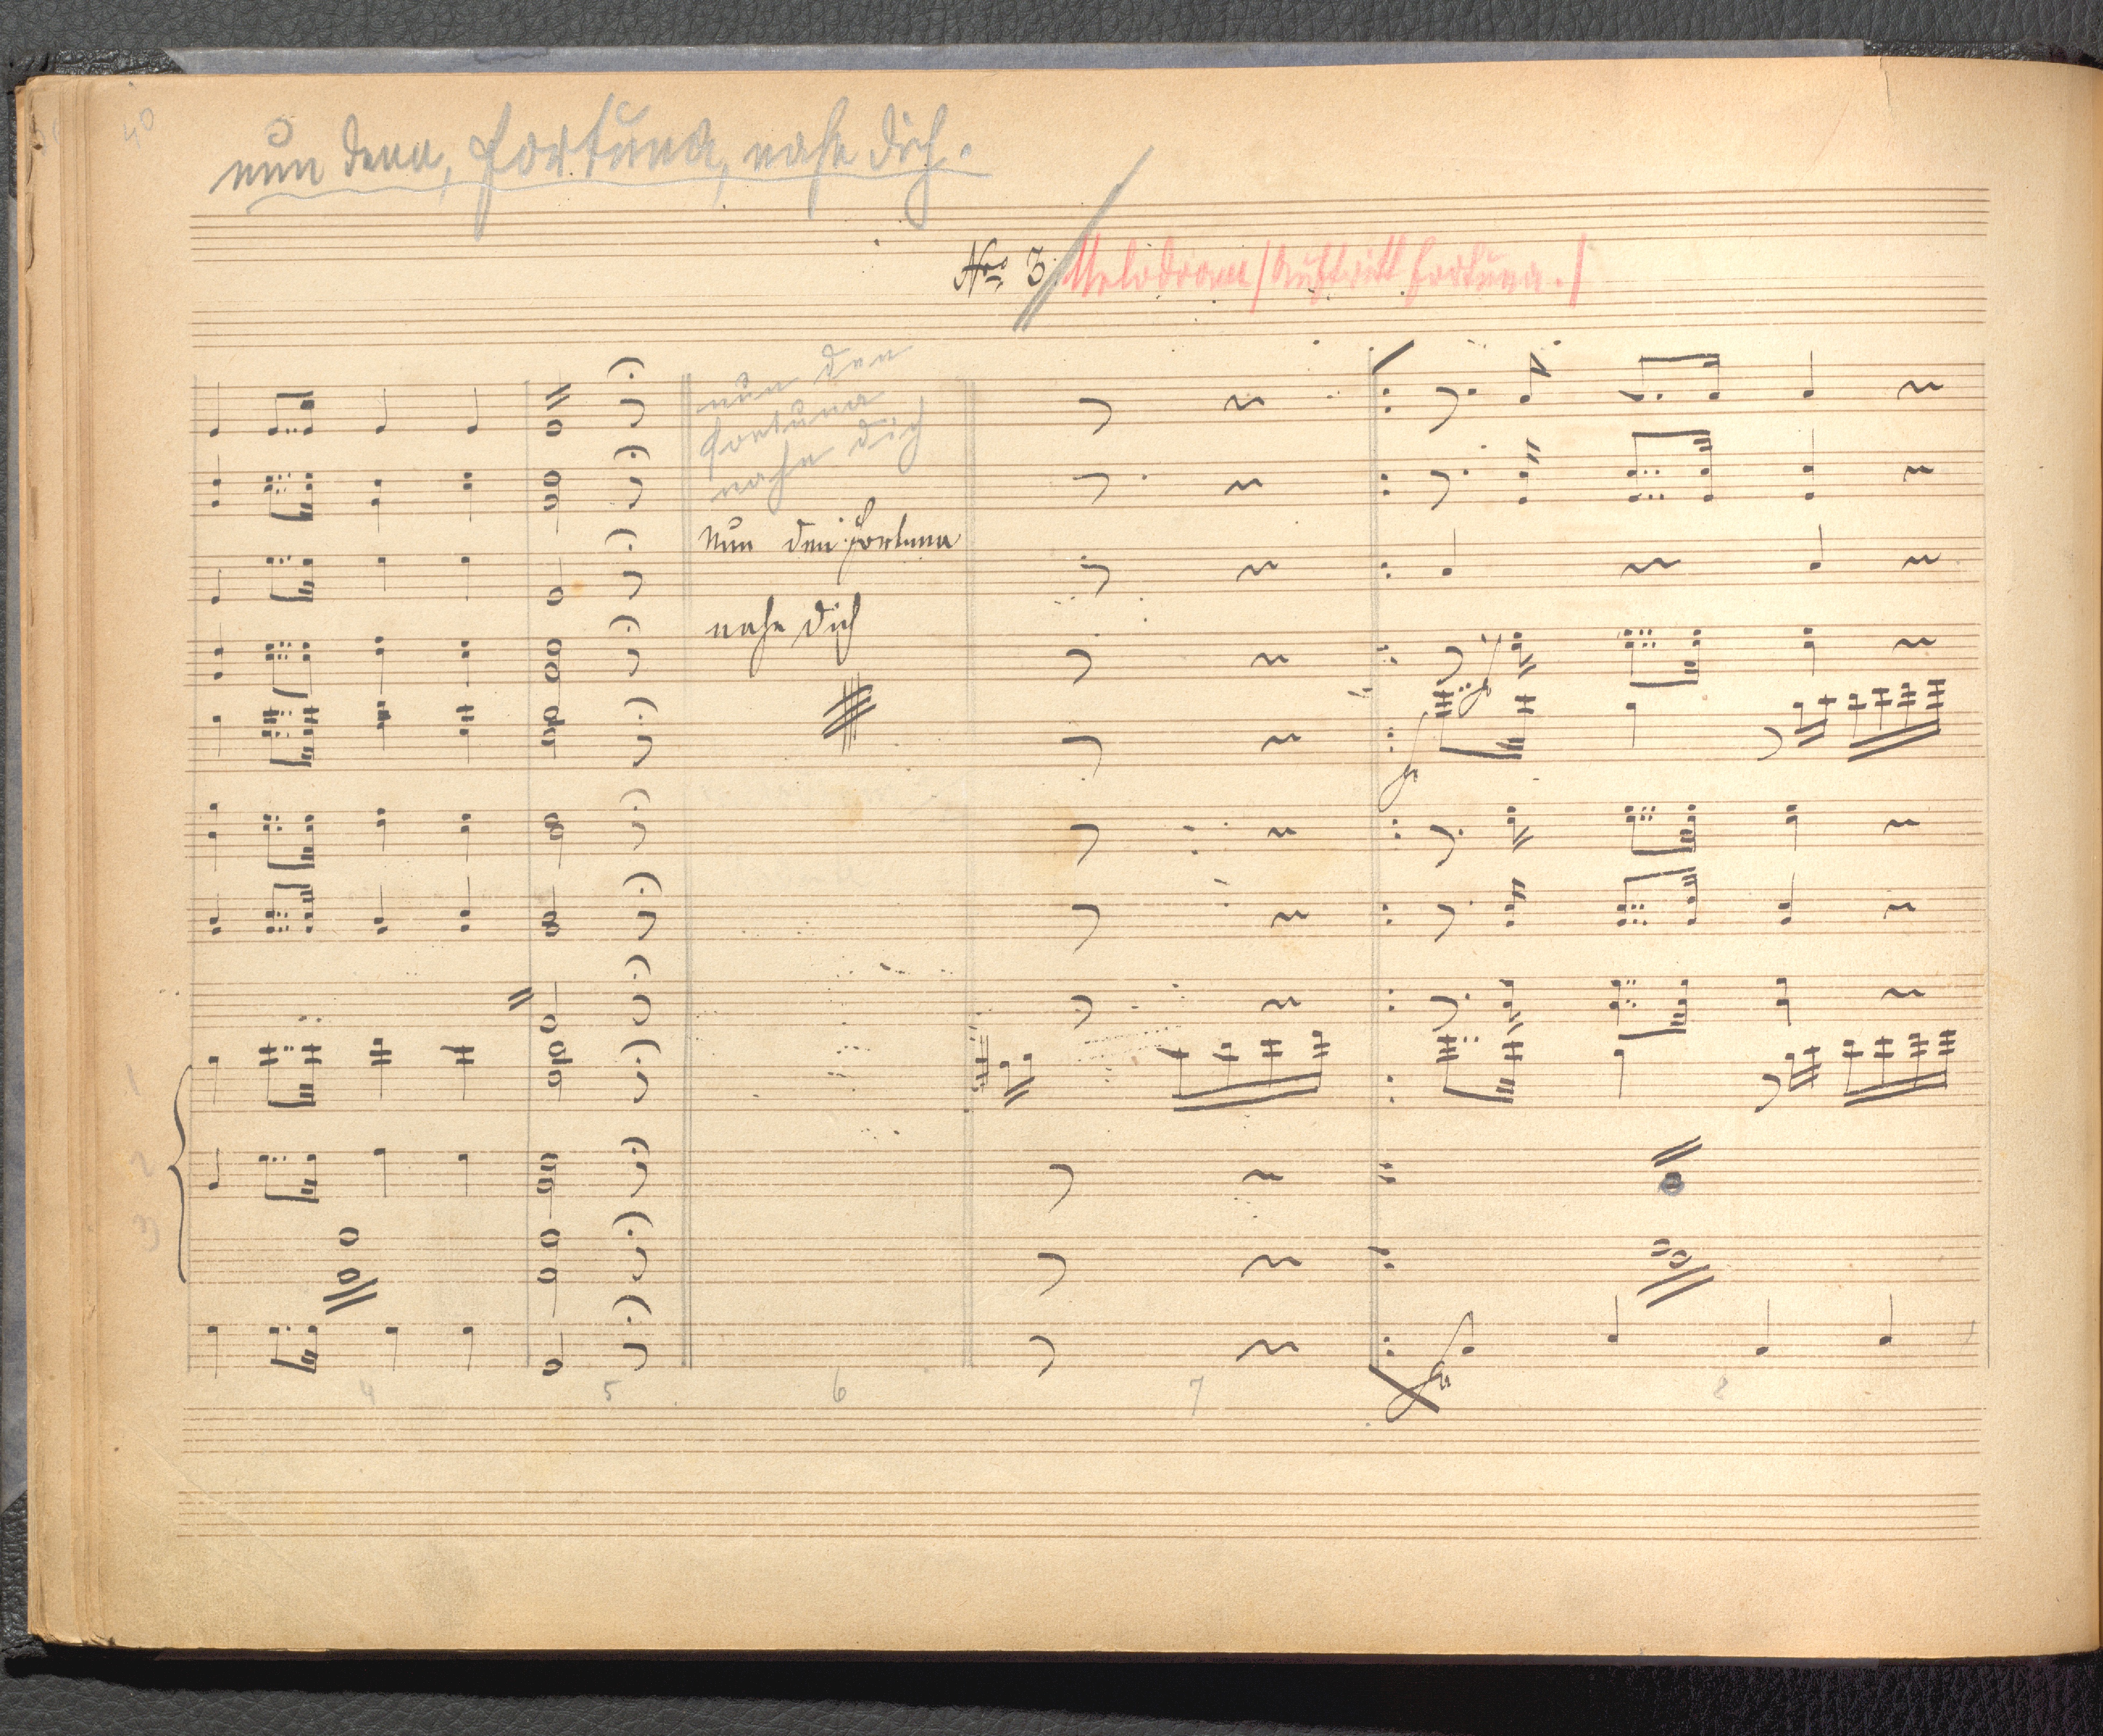 40
nun denn, Fortuna, nahe dich.
No 3. Melodram / Auftritt Fortuna. /
nun den
Fortuna
nahe dich
Nun den Fortuna
nahe dich
fz
fz
1
2
3
fz
4 5 6 7 8